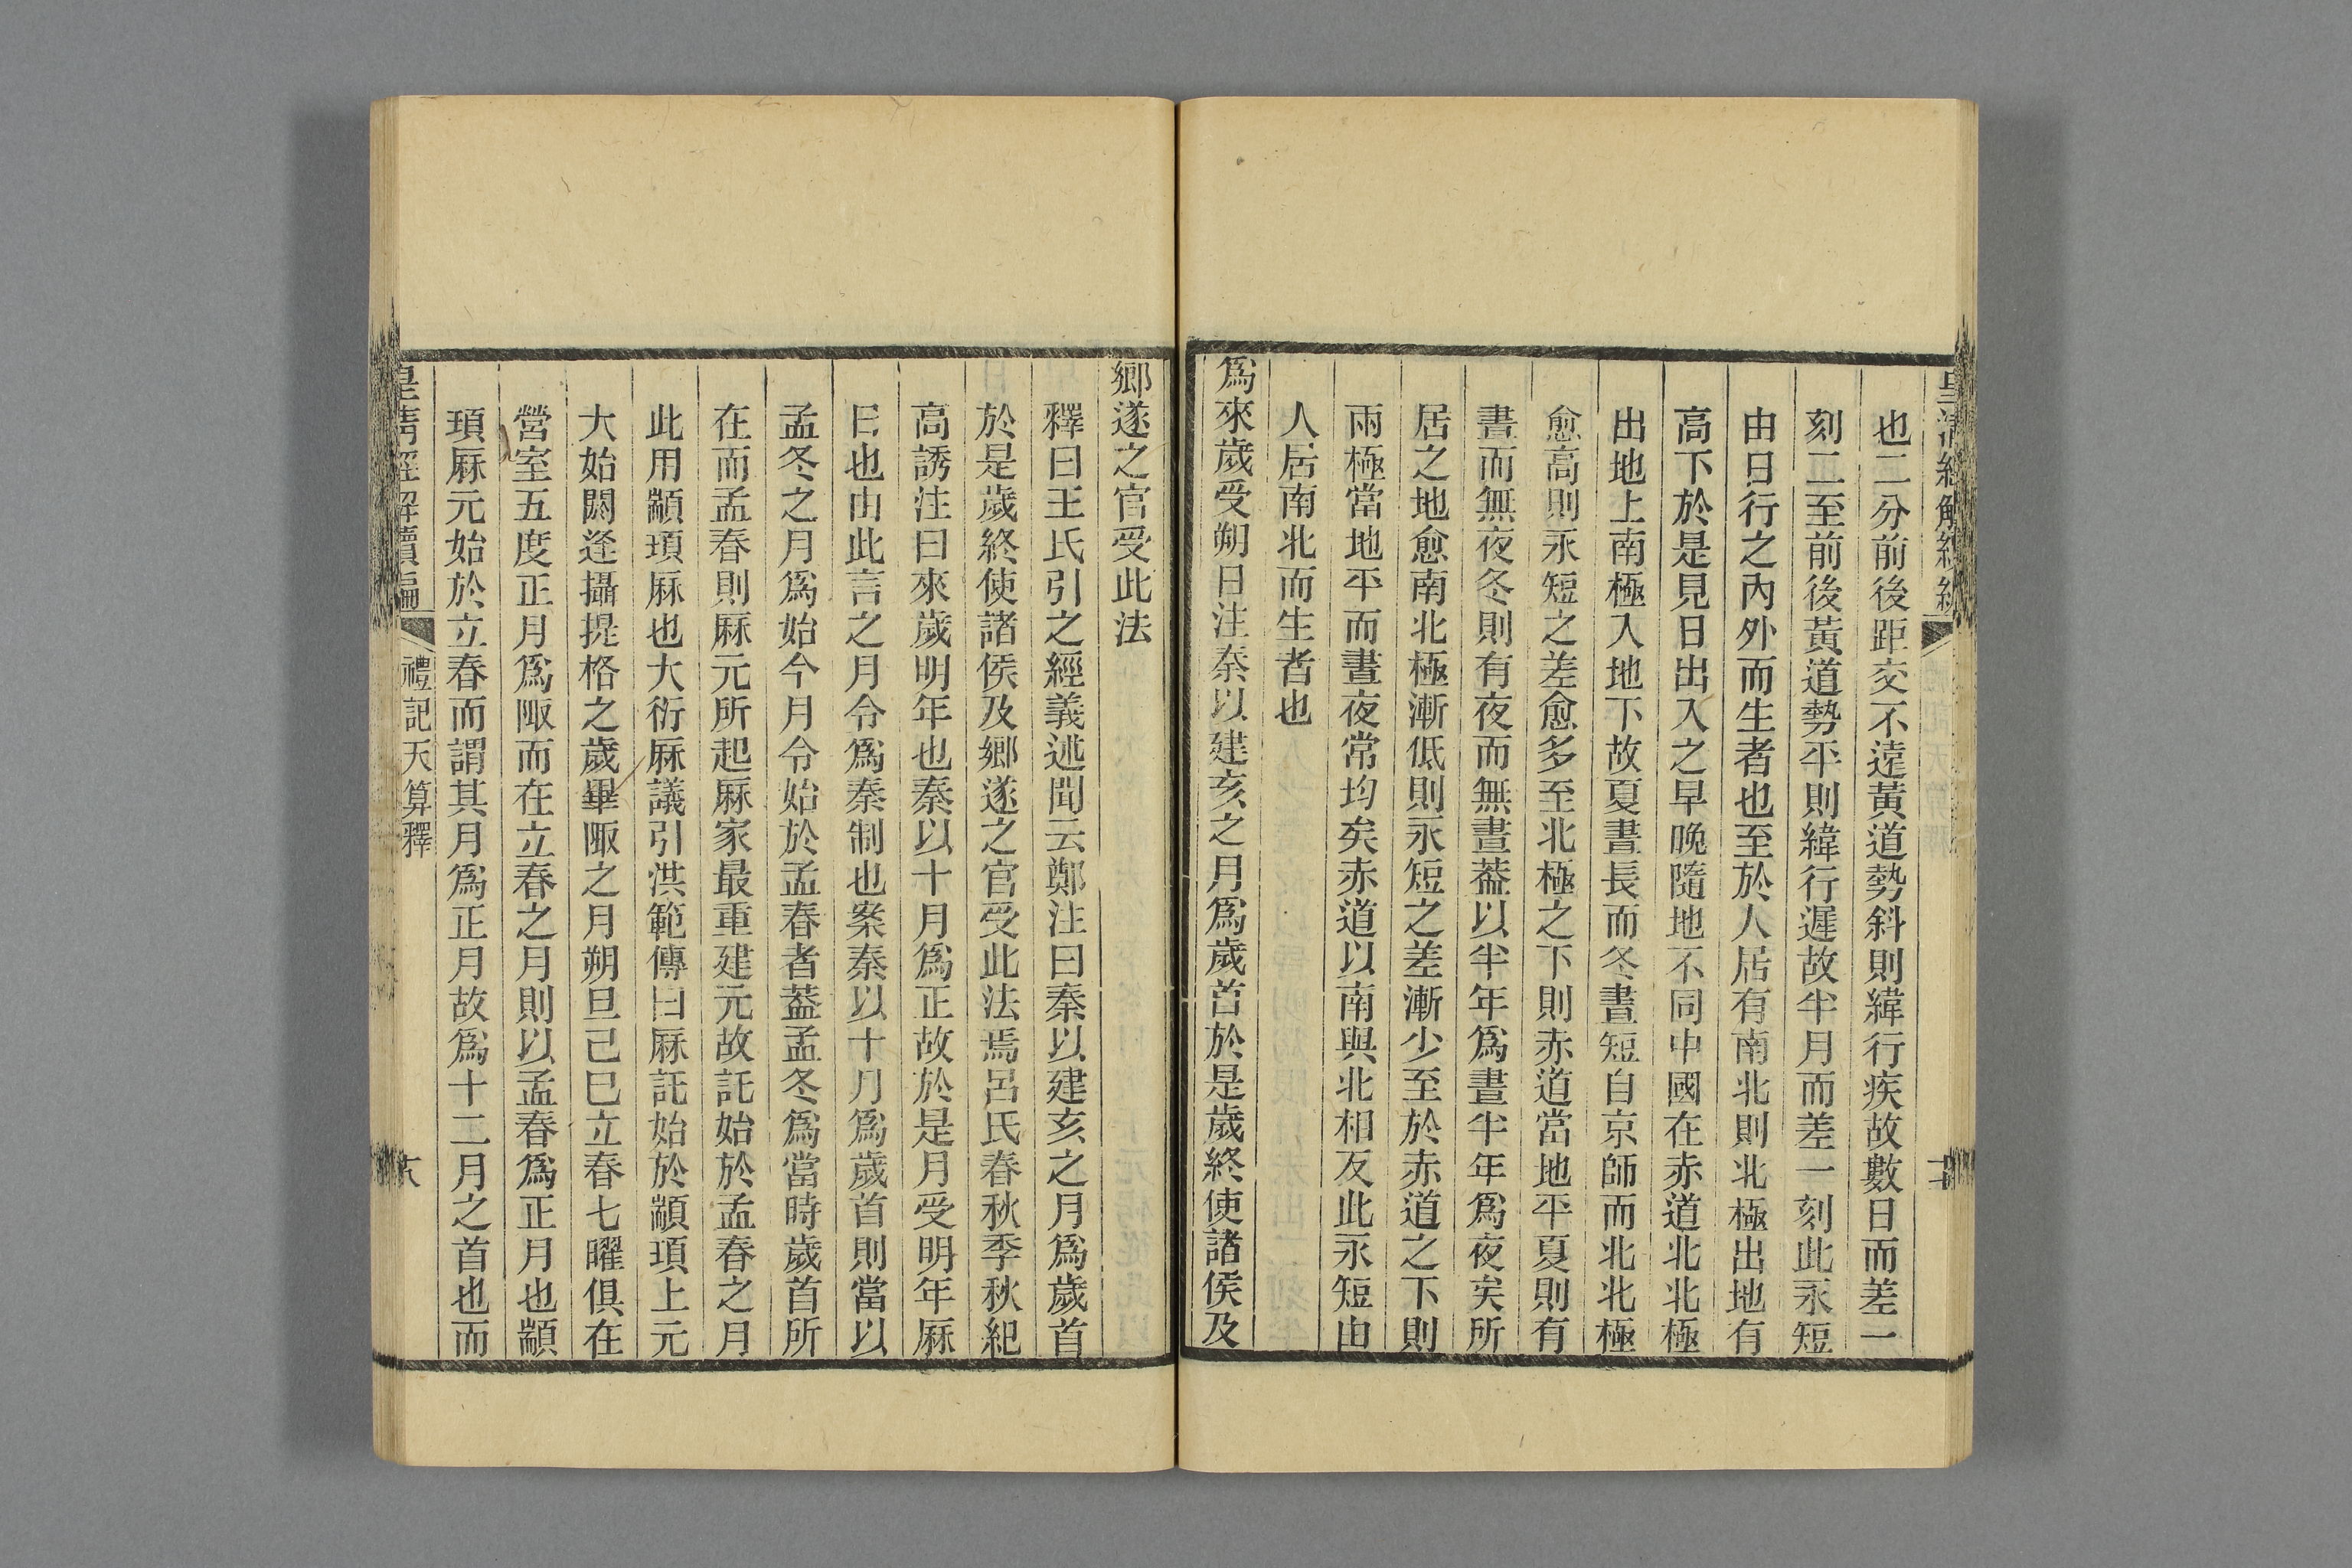 也二分前後距交不遠黃道勢斜則緯行疾故數日而差一
刻二至前後黃道勢平則緯行遲故半月而差一刻此永短
由日行之內外而生者也至於人居有南北則北極出地有
高下於是見日出入之早晚隨地不同中國在赤道北北極
出地上南極入地下故夏晝長而冬晝短自京師而北北極
愈高則永短之差愈多至北極之下則赤道當地平夏則有
晝而無夜冬則有夜而無晝葢以半年爲晝半年爲夜矣所
居之地愈南北極漸低則永短之差漸少至於赤道之下則
兩極當地平而晝夜常均矣赤道以南與北相反此永短由
人居南北而生者也
爲來歲受朔日注秦以建亥之月爲歲首於是歲終使諸侯及
鄉遂之官受此法
釋曰王氏引之經義述聞云鄭注曰秦以建亥之月爲歲首
於是歲終使諸侯及鄉遂之官受此法焉呂氏春秋季秋紀
高誘注曰來歲明年也秦以十月爲正故於是月受明年厤
日也由此言之月令爲秦制也案秦以十月爲歲首則當以
孟冬之月爲始今月令始於孟春者葢孟冬爲當時歲首所
在而孟春則厤元所起厤家最重建元故託始於孟春之月
此用顓頊厤也大衍厤議引洪範傳曰厤託始於顓頊上元
大始閼逢攝提格之歲畢陬之月朔旦己巳立春七曜俱在
營室五度正月爲陬而在立春之月則以孟春爲正月也顓
頊厤元始於立春而謂其月爲正月故爲十二月之首也而
皇清經解續編
禮記天算釋
六